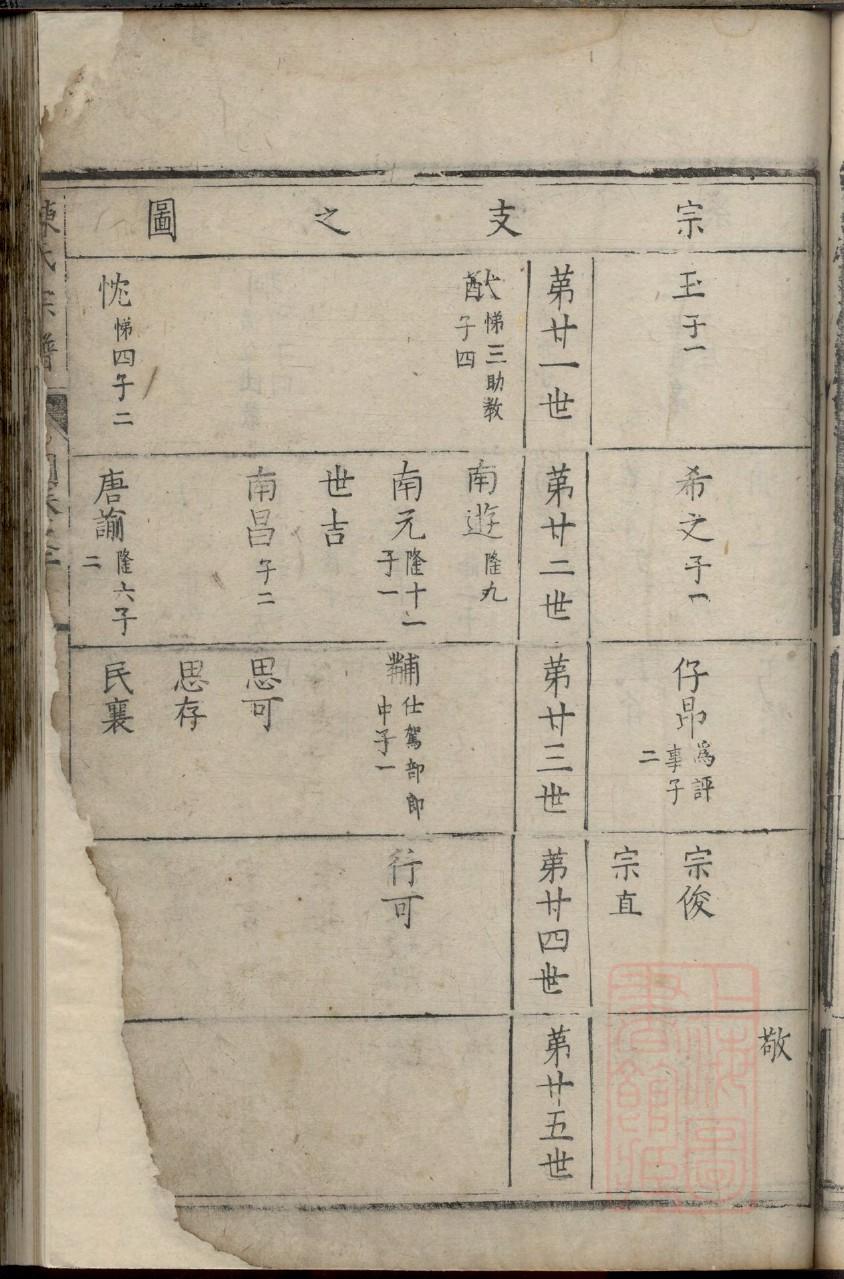 宗支之圖
玉子一
第廿一世
猷悌三助教子四
忱悌四子二
希文子一
第廿二世
南遊隆九
南元隆十一子一
世吉
南昌子二
唐諭隆六子二
仔昂為評事子二
第廿三世
黼仕駕部郎中子一
思可
思存
民襄
宗俊
宗直
第廿四世
行可
敬
第廿五世
陳氏宗譜
上海圖書館藏